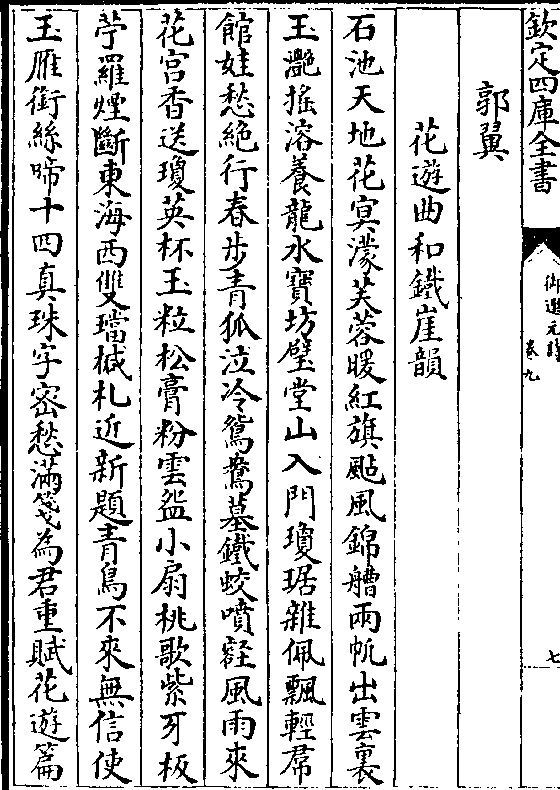 欽定四庫全書
御選元詩
卷九
七
郭翼
花遊曲和鐵崖韻
石池天地花㝠濛芙蓉暖紅旗颭風錦艚兩帆出雲裏
玉灔搖溶養龍水寶坊璧堂山入門瓊琚雜佩飄輕帬
館娃愁絶行春步青狐泣冷鴛鴦墓鐵蛟噴壑風雨來
花宮香送瓊英杯玉粒松膏粉雲盌小扇桃歌紫牙板
苧羅煙斷東海西雙璫椷札近新題青鳥不來無信使
玉雁銜絲啼十四真珠字密愁滿箋為君重賦花遊篇